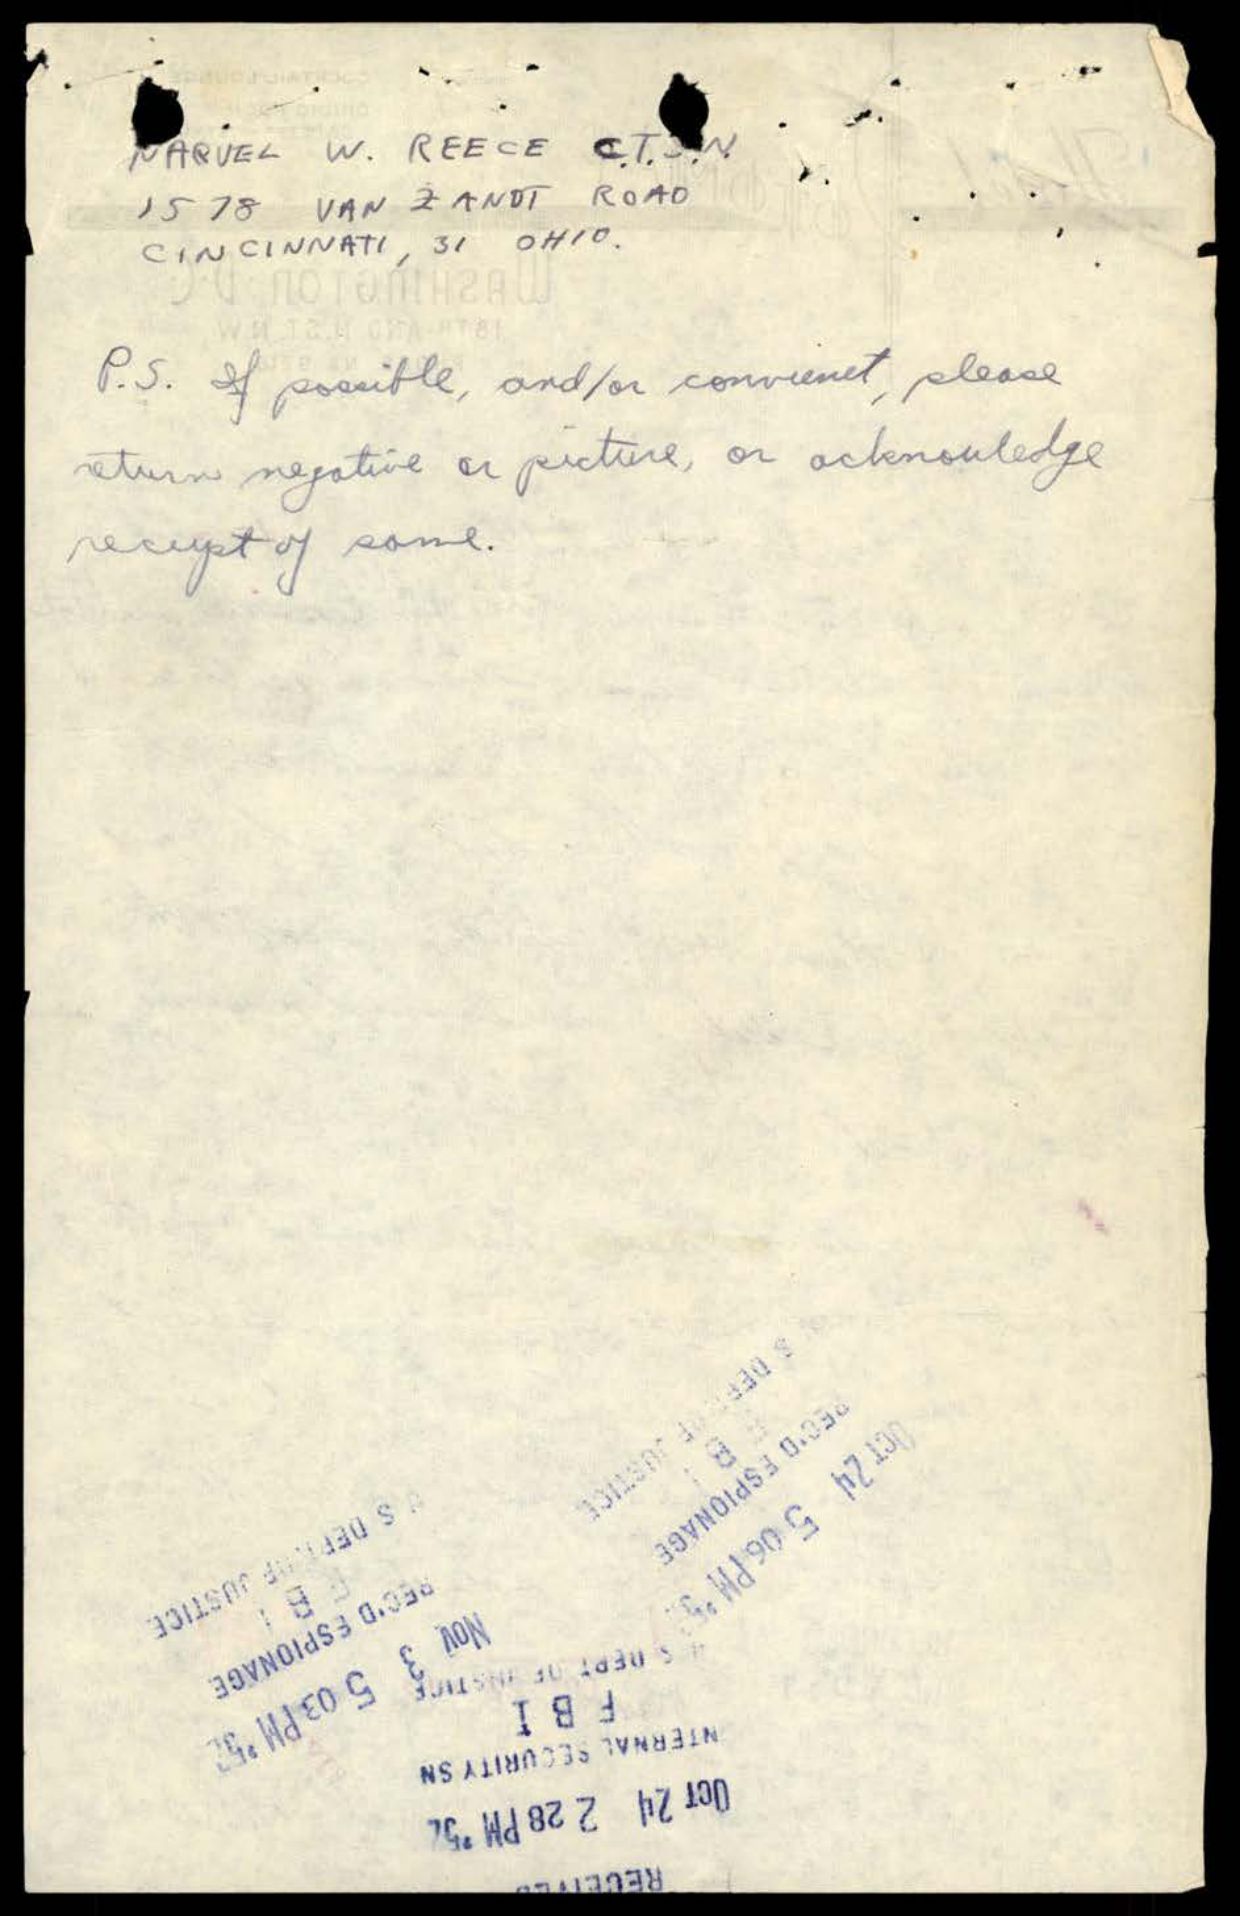 NARVEL W. REECE C.T.S.N.
1578 VAN ZANDT ROAD
CINCINNATI, 31 OHIO.
WASHINGTON D.C.
P.S. If possible, and/or convienet, please
return negative or picture, or acknowledge
receipt of same.
U S DEPT. OF JUSTICE
F B I
REC'D ESPIONAGE
OCT 24 5 06 PM '52
U S DEPT. OF JUSTICE
F B I
REC'D ESPIONAGE
NOV 3 5 03 PM '52
U.S DEPT OF JUSTICE
F B I
INTERNAL SECURITY SN
OCT 24 2 28 PM '52
RECEIVED